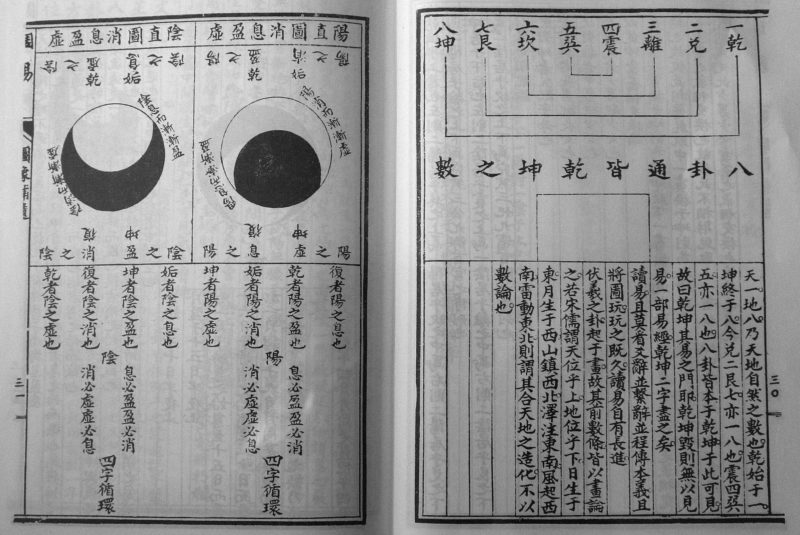 一乾
二兌
三離
四震
五巽
六坎
七艮
八坤
八卦通皆乾坤之數
天一地八乃天地自然之數也乾始于一
坤終于八今兌二艮七亦一八也震四巽
五亦一八也八卦皆本于乾坤于此可見
故曰乾坤其易之門耶乾坤毀則無以見
易一部易經乾坤二字盡之矣
讀易且莫看爻辭並繫辭並程傳本義且
將圖玩玩之既久讀易自有長進
伏羲之卦起于畫故其前數條皆以畫論
之若宋儒謂天位乎上地位乎下日生于
東月生于西山鎮西北澤注東南風起西
南雷動東北則謂其合天地之造化不以
數論也
三〇
陽直圖消息盈虛
陽之消
姤
陽之盈
乾
陽消而漸漸虛
陽息而漸漸盈
陽之虛
坤
陽之息
復
復者陽之息也
乾者陽之盈也
姤者陽之消也
坤者陽之虛也
陽
息必盈盈必消
消必虛虛必息
四字循環
陰直圖消息盈虛
陰之息
姤
陰之虛
乾
陰息而漸漸盈
陰消而漸漸虛
陰之盈
坤
陰之消
復
姤者陰之息也
坤者陰之盈也
復者陰之消也
乾者陰之虛也
陰
息必盈盈必消
消必虛虛必息
四字循環
三一